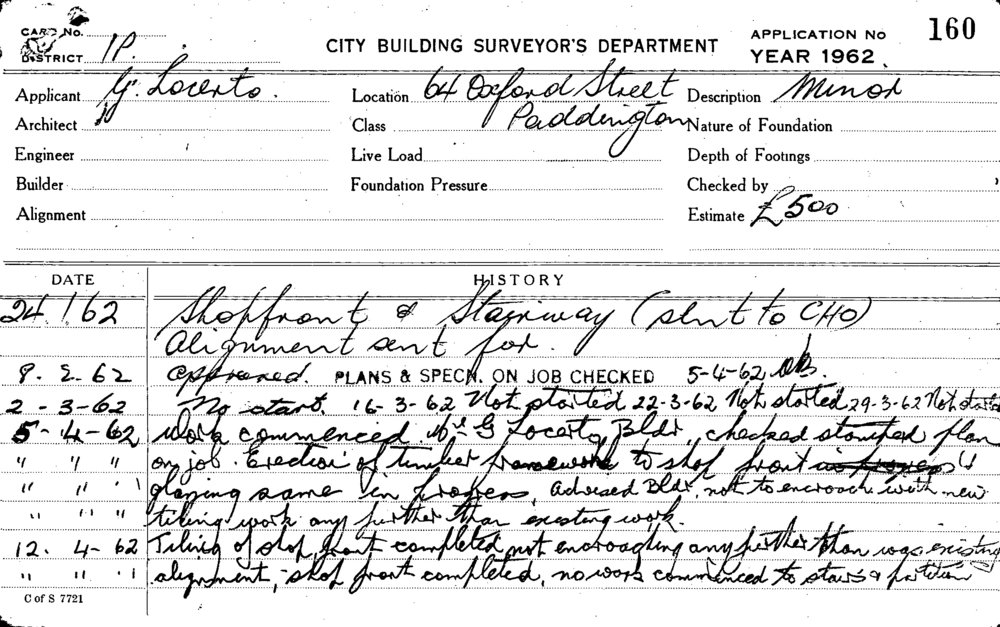 CARD No.
160
CITY BUILDING SURVEYOR'S DEPARTMENT
APPLICATION No
DISTRICT 1P.
YEAR 1962.
Applicant G. Locerto. Location 64 Oxford Street Description Minor
Architect Class Paddington Nature of Foundation
Engineer Live Load Depth of Footings
Builder Foundation Pressure Checked by
Alignment Estimate £500
DATE HISTORY
24 / 62 Shopfront & Stairway (sent to CHO)
Alignment sent for.
8. 2. 62 approved. PLANS & SPECN. ON JOB CHECKED 5-4-62
2-3-62 No start. 16-3-62 Not started 22-3-62 Not started 29-3-62 Not started
5-4-62 work commenced. Mr G Locerto Bldr, checked stamped plan
" " " on job. Erection of timber framework to shop front in progress &
" " " glazing same in progress, advised Bldr, not to encroach with new
" " " tiling work any further than existing work.
12. 4-62 Tiling of shop front completed not encroaching any further than was existing
" " " alignment, shop front completed, no work commenced to stairs & partition
C of S 7721